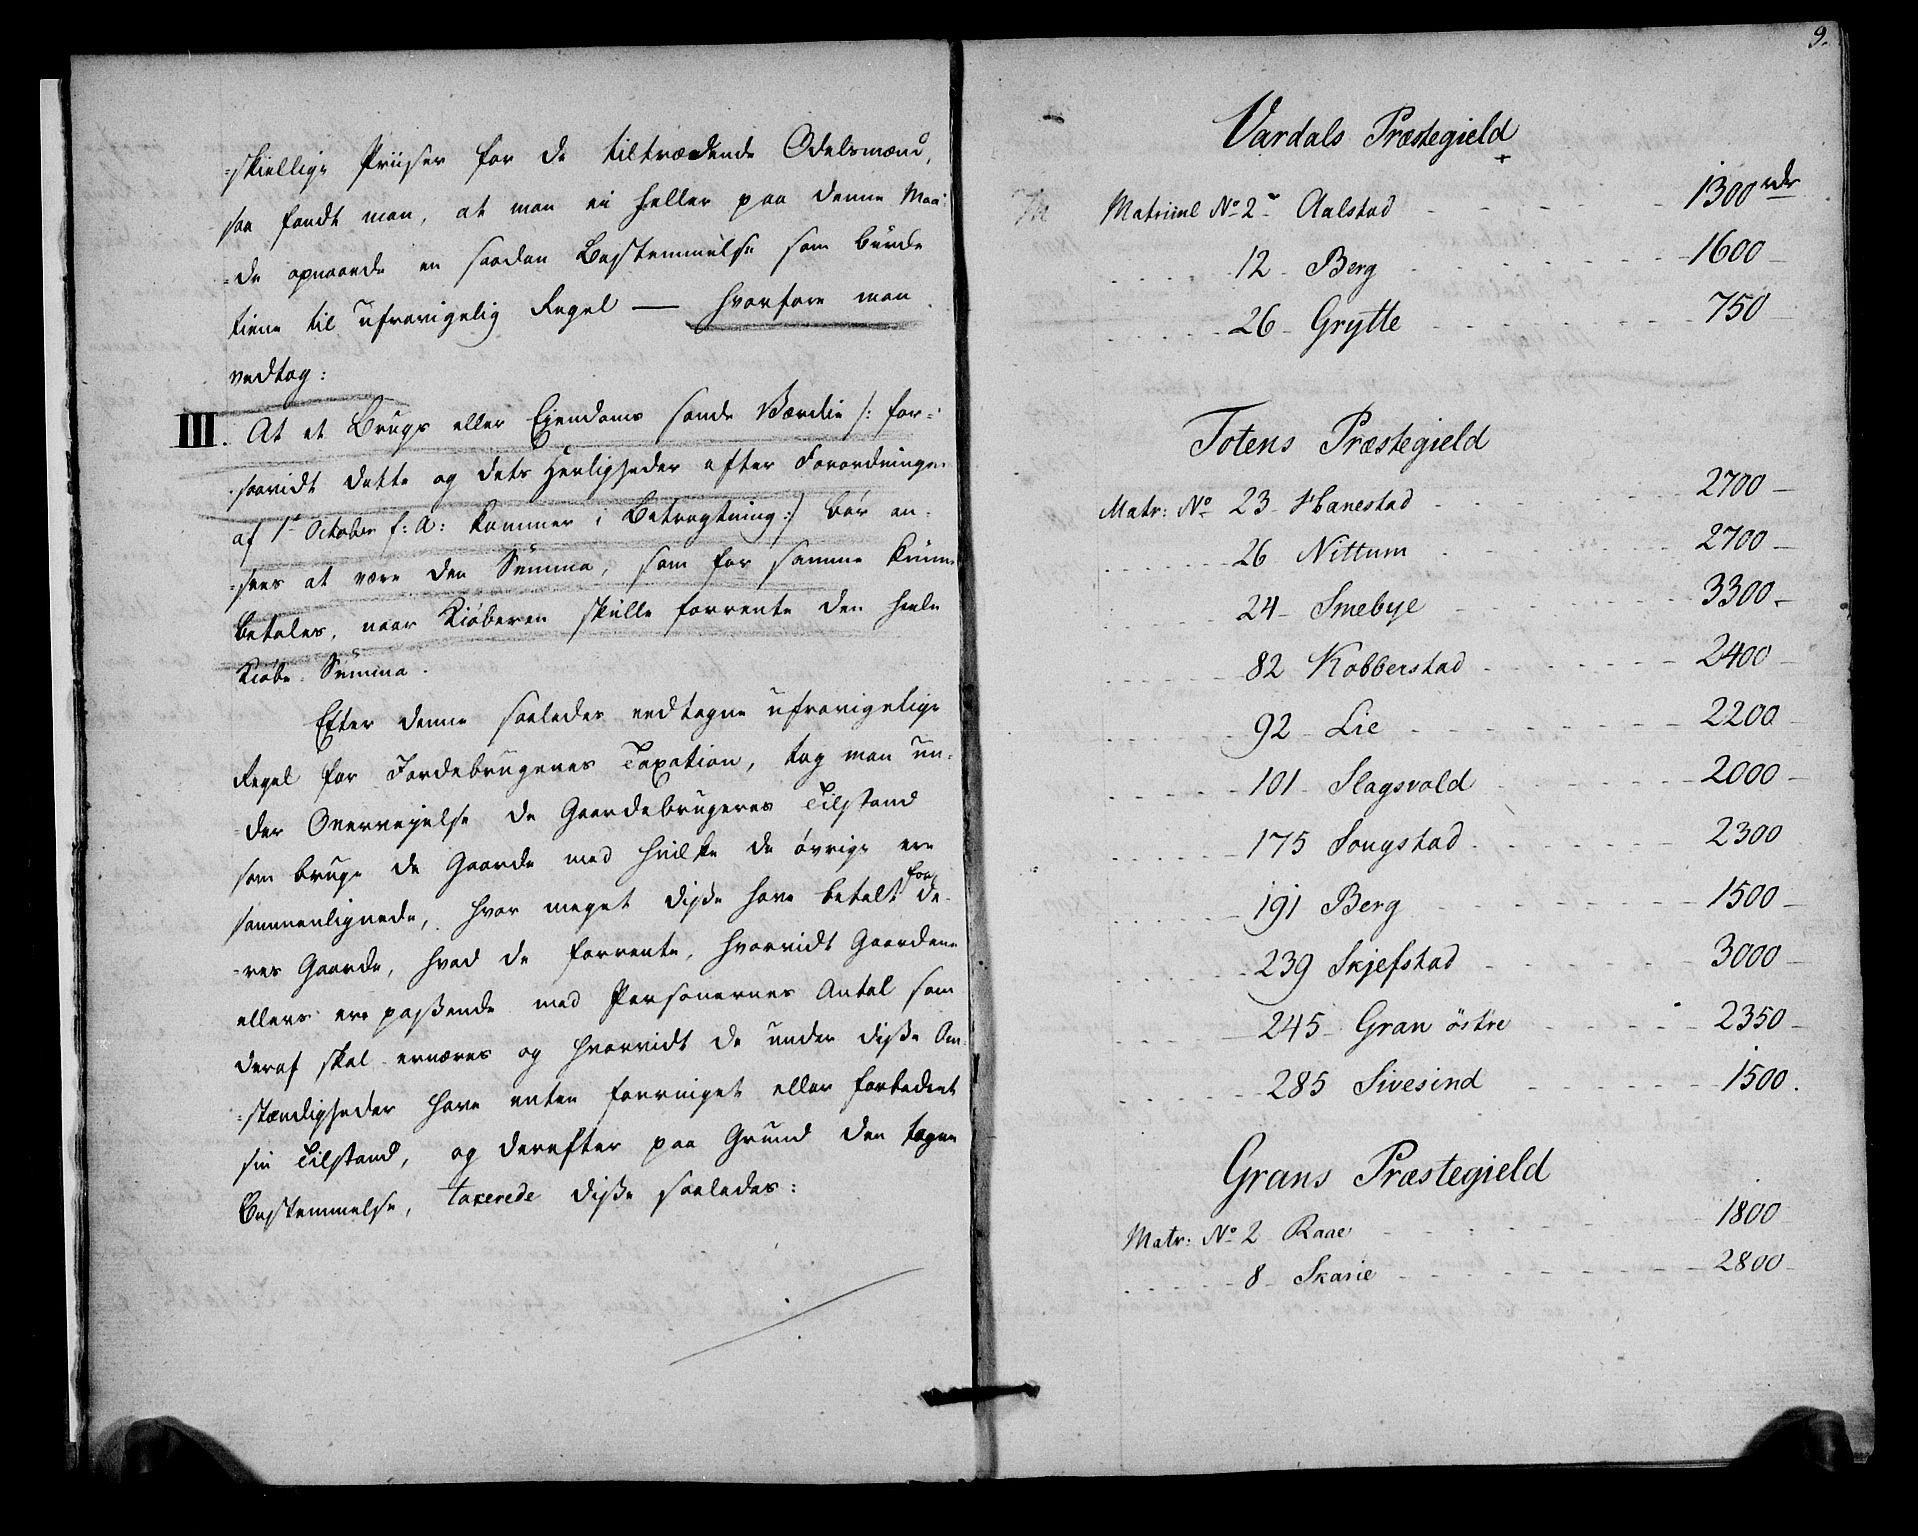 -skiellige Priiser for de tiltrædende Odelsmænd,
saa fandt man, at man ei heller paa denne Maa-
-de opnaaede en saadan Bestemmelse som burde
tiene til ufravigelig Regel — hvorfore man
vedtog:
III. At et Brugs eller Ejendoms sande Værdie /: for-
saavidt dette og dets Herligheder efter Forordningen
af 1te October f: A: kommer i Betragtning :/ bør an-
-sees at være den Summa, som for samme kunne
betales, naar Kiøberen skulle forrente den heele
Kiøbe Summa.
Efter denne saaledes vedtagne ufravigelige
Regel for Jordebrugenes Taxation, tog man un-
-der Overvejelse de Gaardebrugeres Tilstand
som bruge de Gaarde med hvilke de øvrige ere
sammenlignede, hvor meget diße have betalt for de-
-res Gaarde, hvad de forrente, hvorvidt Gaardene
ellers ere paßende med Personernes Antal som
deraf skal ernæres og hvorvidt de under diße Om-
-stændigheder have enten forringet eller forbedret
sin Tilstand, og derefter paa Grund den tagne
Bestemmelse, taxerede diße saaledes:
9.
Vardals Præstegield
Matriiul No 2 Aalstad 1300 rdr
12 Berg 1600
26 Grytte 750
Totens Præstegield
Matr: No 23 Hanestad 2700
26 Nittum 2700
24 Smebye 3300
82 Kobberstad 2400
92 Lie 2200
101 Slagsvold 2000
175 Sougstad 2300
191 Berg 1500
239 Skjefstad 3000
245 Gran östre 2350
285 Sivesind 1500.
Grans Præstegield
Matr: No 2 Raae 1800
8 Skarie 2800